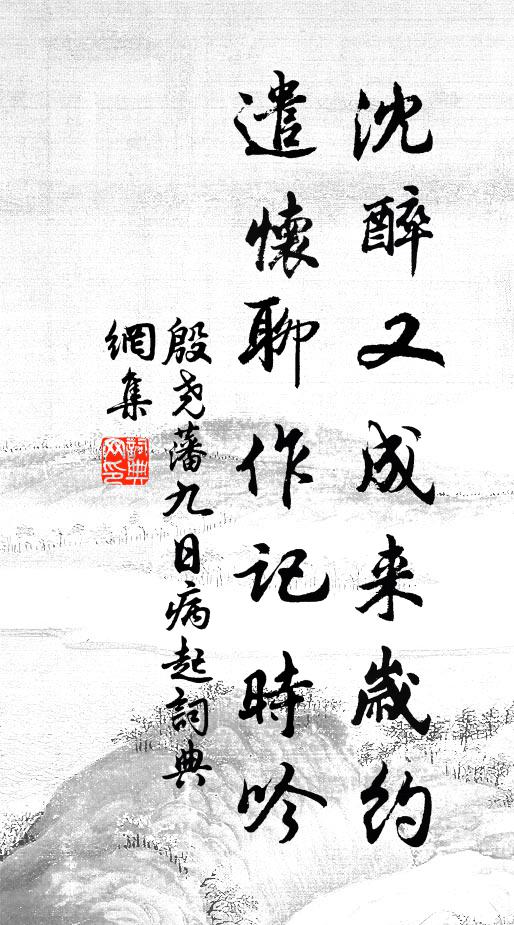 沈醉又成来歲約
遣懷聊作記時吟
殷尧藩九日病起詞典
網集
詞典
网印